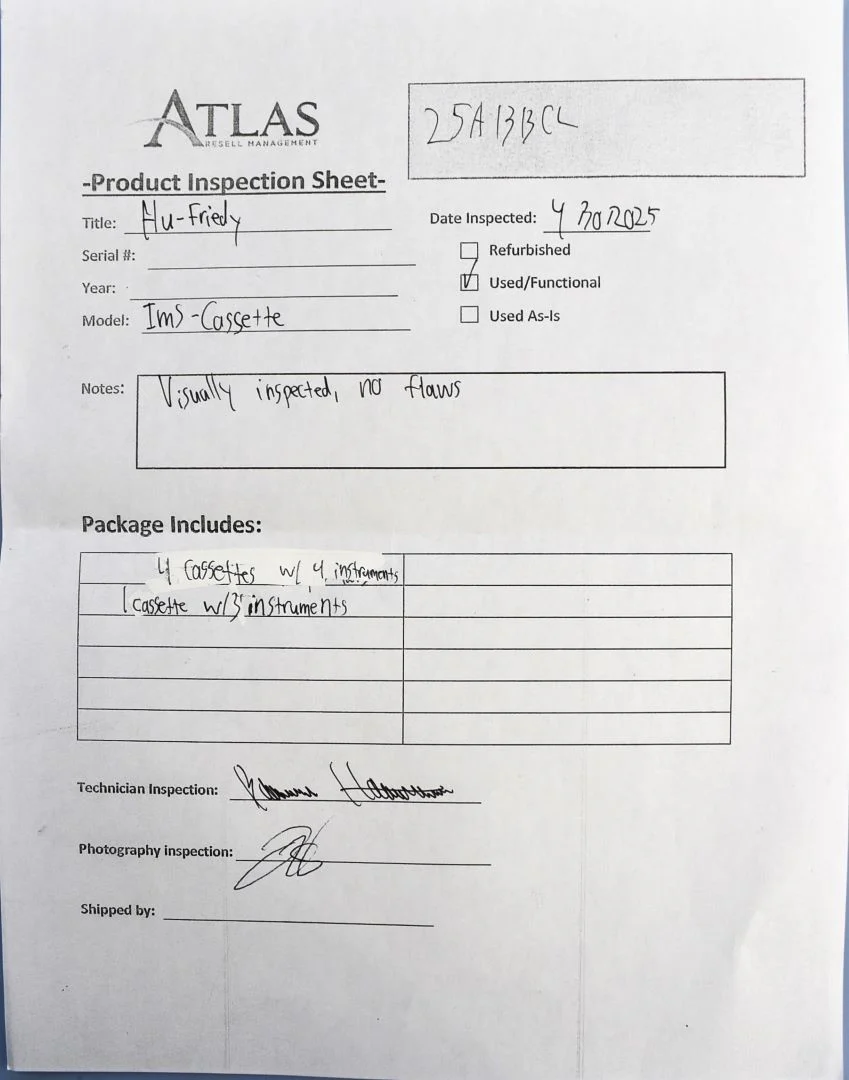 ATLAS
RESELL MANAGEMENT
25A13BCL
-Product Inspection Sheet-
Title: Hu-Friedy
Date Inspected: 4 30 2025
Serial #:
Refurbished
Year:
Used/Functional
Model: Ims-Cassette
Used As-Is
Notes: Visually inspected, no flaws
Package Includes:
4 Cassettes w/ 4 instruments
1 cassette w/3 instruments
Technician Inspection:
Photography inspection:
Shipped by: